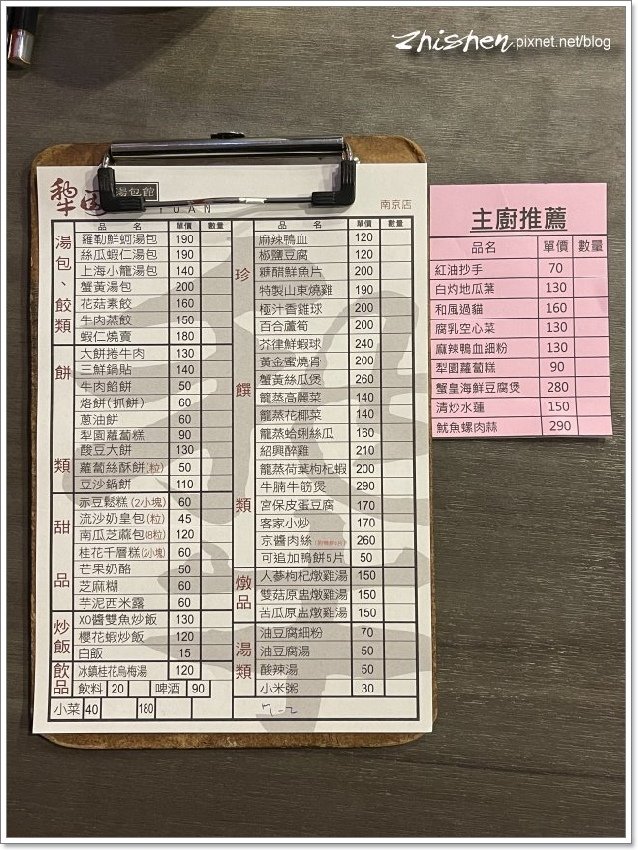 zhishen.pixnet.net/blog
犁園 湯包館
YUAN
南京店
品 名 單價 數量
湯包、餃類
羅勒鮮蚵湯包 190
絲瓜蝦仁湯包 190
上海小籠湯包 140
蟹黃湯包 200
花菇素餃 160
牛肉蒸餃 150
蝦仁燒賣 180
餅類
大餅捲牛肉 130
三鮮鍋貼 140
牛肉餡餅 50
烙餅(抓餅) 60
蔥油餅 60
犁園蘿蔔糕 90
酸豆大餅 130
蘿蔔絲酥餅(粒) 50
豆沙鍋餅 110
甜品
赤豆鬆糕(2小塊) 60
流沙奶皇包(粒) 45
南瓜芝麻包(8粒) 120
桂花千層糕(2小塊) 60
芒果奶酪 50
芝麻糊 60
芋泥西米露 60
炒飯
XO醬雙魚炒飯 130
櫻花蝦炒飯 120
白飯 15
飲品
冰鎮桂花烏梅湯 120
飲料 20 啤酒 90
小菜 40 180
品 名 單價 數量
珍饌類
麻辣鴨血 120
椒鹽豆腐 120
糖醋鮮魚片 200
特製山東燒雞 190
極汁香雞球 200
百合蘆筍 200
芥律鮮蝦球 240
黃金蜜燒骨 200
蟹黃絲瓜煲 260
籠蒸高麗菜 140
籠蒸花椰菜 140
籠蒸蛤蜊絲瓜 160
紹興醉雞 210
籠蒸荷葉枸杞蝦 200
牛腩牛筋煲 290
宮保皮蛋豆腐 170
客家小炒 170
京醬肉絲 260
可追加鴨餅5片 50
燉品
人蔘枸杞燉雞湯 150
雙菇原盅燉雞湯 150
苦瓜原盅燉雞湯 150
湯類
油豆腐細粉 70
油豆腐湯 50
酸辣湯 50
小米粥 30
主廚推薦
品名 單價 數量
紅油抄手 70
白灼地瓜葉 130
和風過貓 160
腐乳空心菜 130
麻辣鴨血細粉 130
犁園蘿蔔糕 90
蟹皇海鮮豆腐煲 280
清炒水蓮 150
魷魚螺肉蒜 290